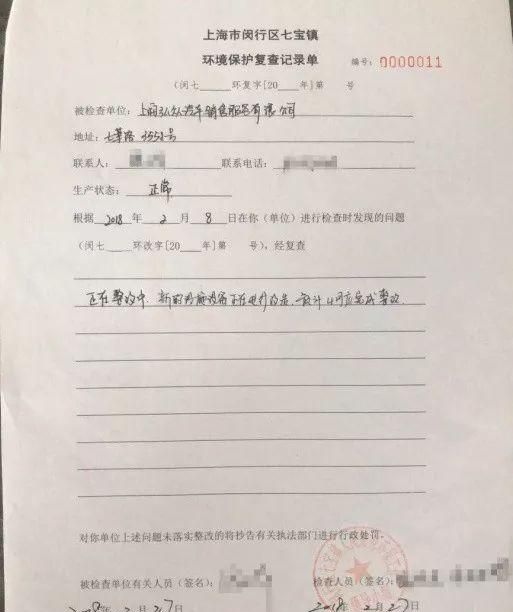 上海市闵行区七宝镇
环境保护复查记录单 编号：0000011
（闵七____环复字[20____年]第 号
被检查单位：上海弘众汽车销售服务有限公司
地址：七莘路3555号
联系人： 联系电话：
生产状态：正常
根据2018年2月8日在你（单位）进行检查时发现的问题
（闵七____环改字[20____年]第 号），经复查
正在整改中，新的设备正在，4月应完成整改
对你单位上述问题未落实整改的将抄告有关执法部门进行行政处罚。
被检查单位有关人员（签名）： 检查人员（签名）：
2018年2月27 2018年2月27日